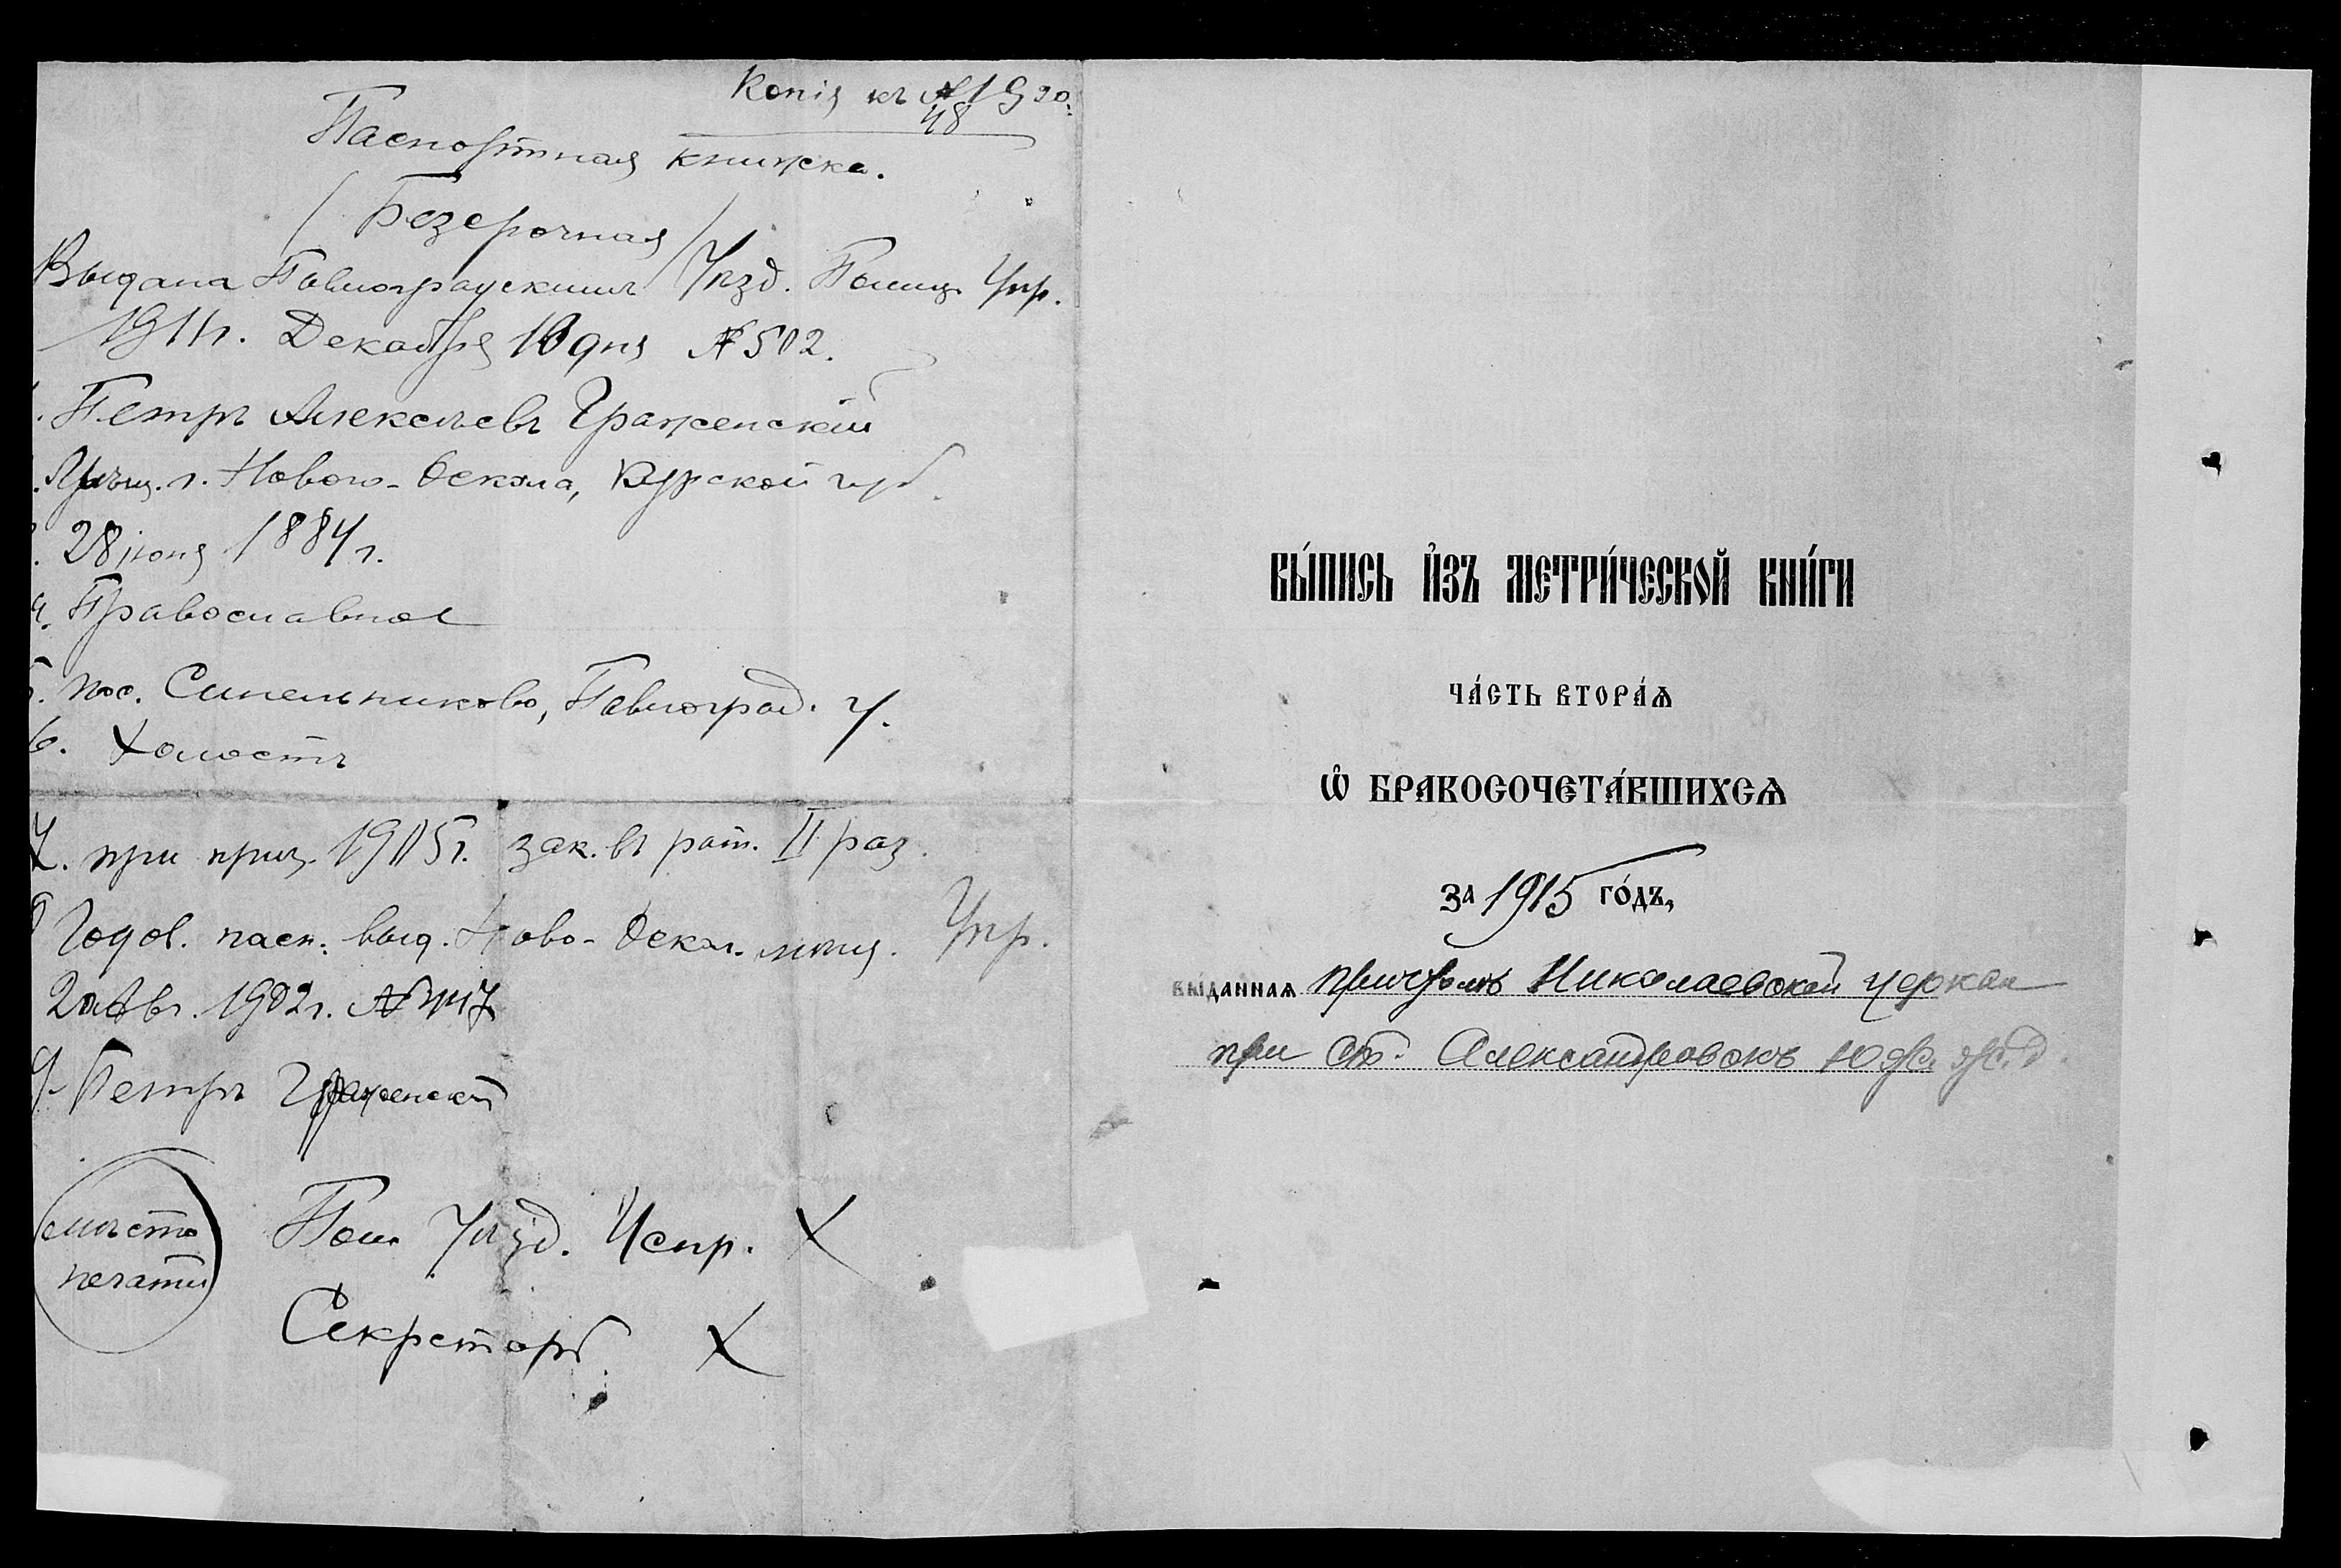 Копія къ № 1920.
48
Паспортная книжка.
(Безсрочная)
Выдана Павлоградскимъ Уѣзд. Полиц. Упр.
1911г. Декабря 10 дня № 502.
Петръ Алексѣевъ Граженскій
Мѣщ. г. Новаго-Оскола, Курской губ.
28 іюня 1884 г.
4. Православное
5. пос. Синельниково, Павлоград. у.
6. Холостъ
7. при приз. 1905г. зач. въ рат. II раз.
8 Годов. пасп. выд. Ново-Оскол. мѣщ. Упр.
Авг. 1902г. №
9. Петръ Граженскій
мѣсто
печати
Пом. Уѣзд. Испр. X
Секретарь X
ВЫ́ПИСЬ И҆ЗЪ МЕТРИ́ЧЕСКОЙ КНИ́ГИ
ЧА́СТЬ ВТОРА́Ѧ
Ѽ БРАКОСОЧЕТА́ВШИХСѦ
за 1915 го́дъ,
вы́даннаѧ причтомъ Николаевской церкви
при ст. Александровскъ Юж. ж. д.